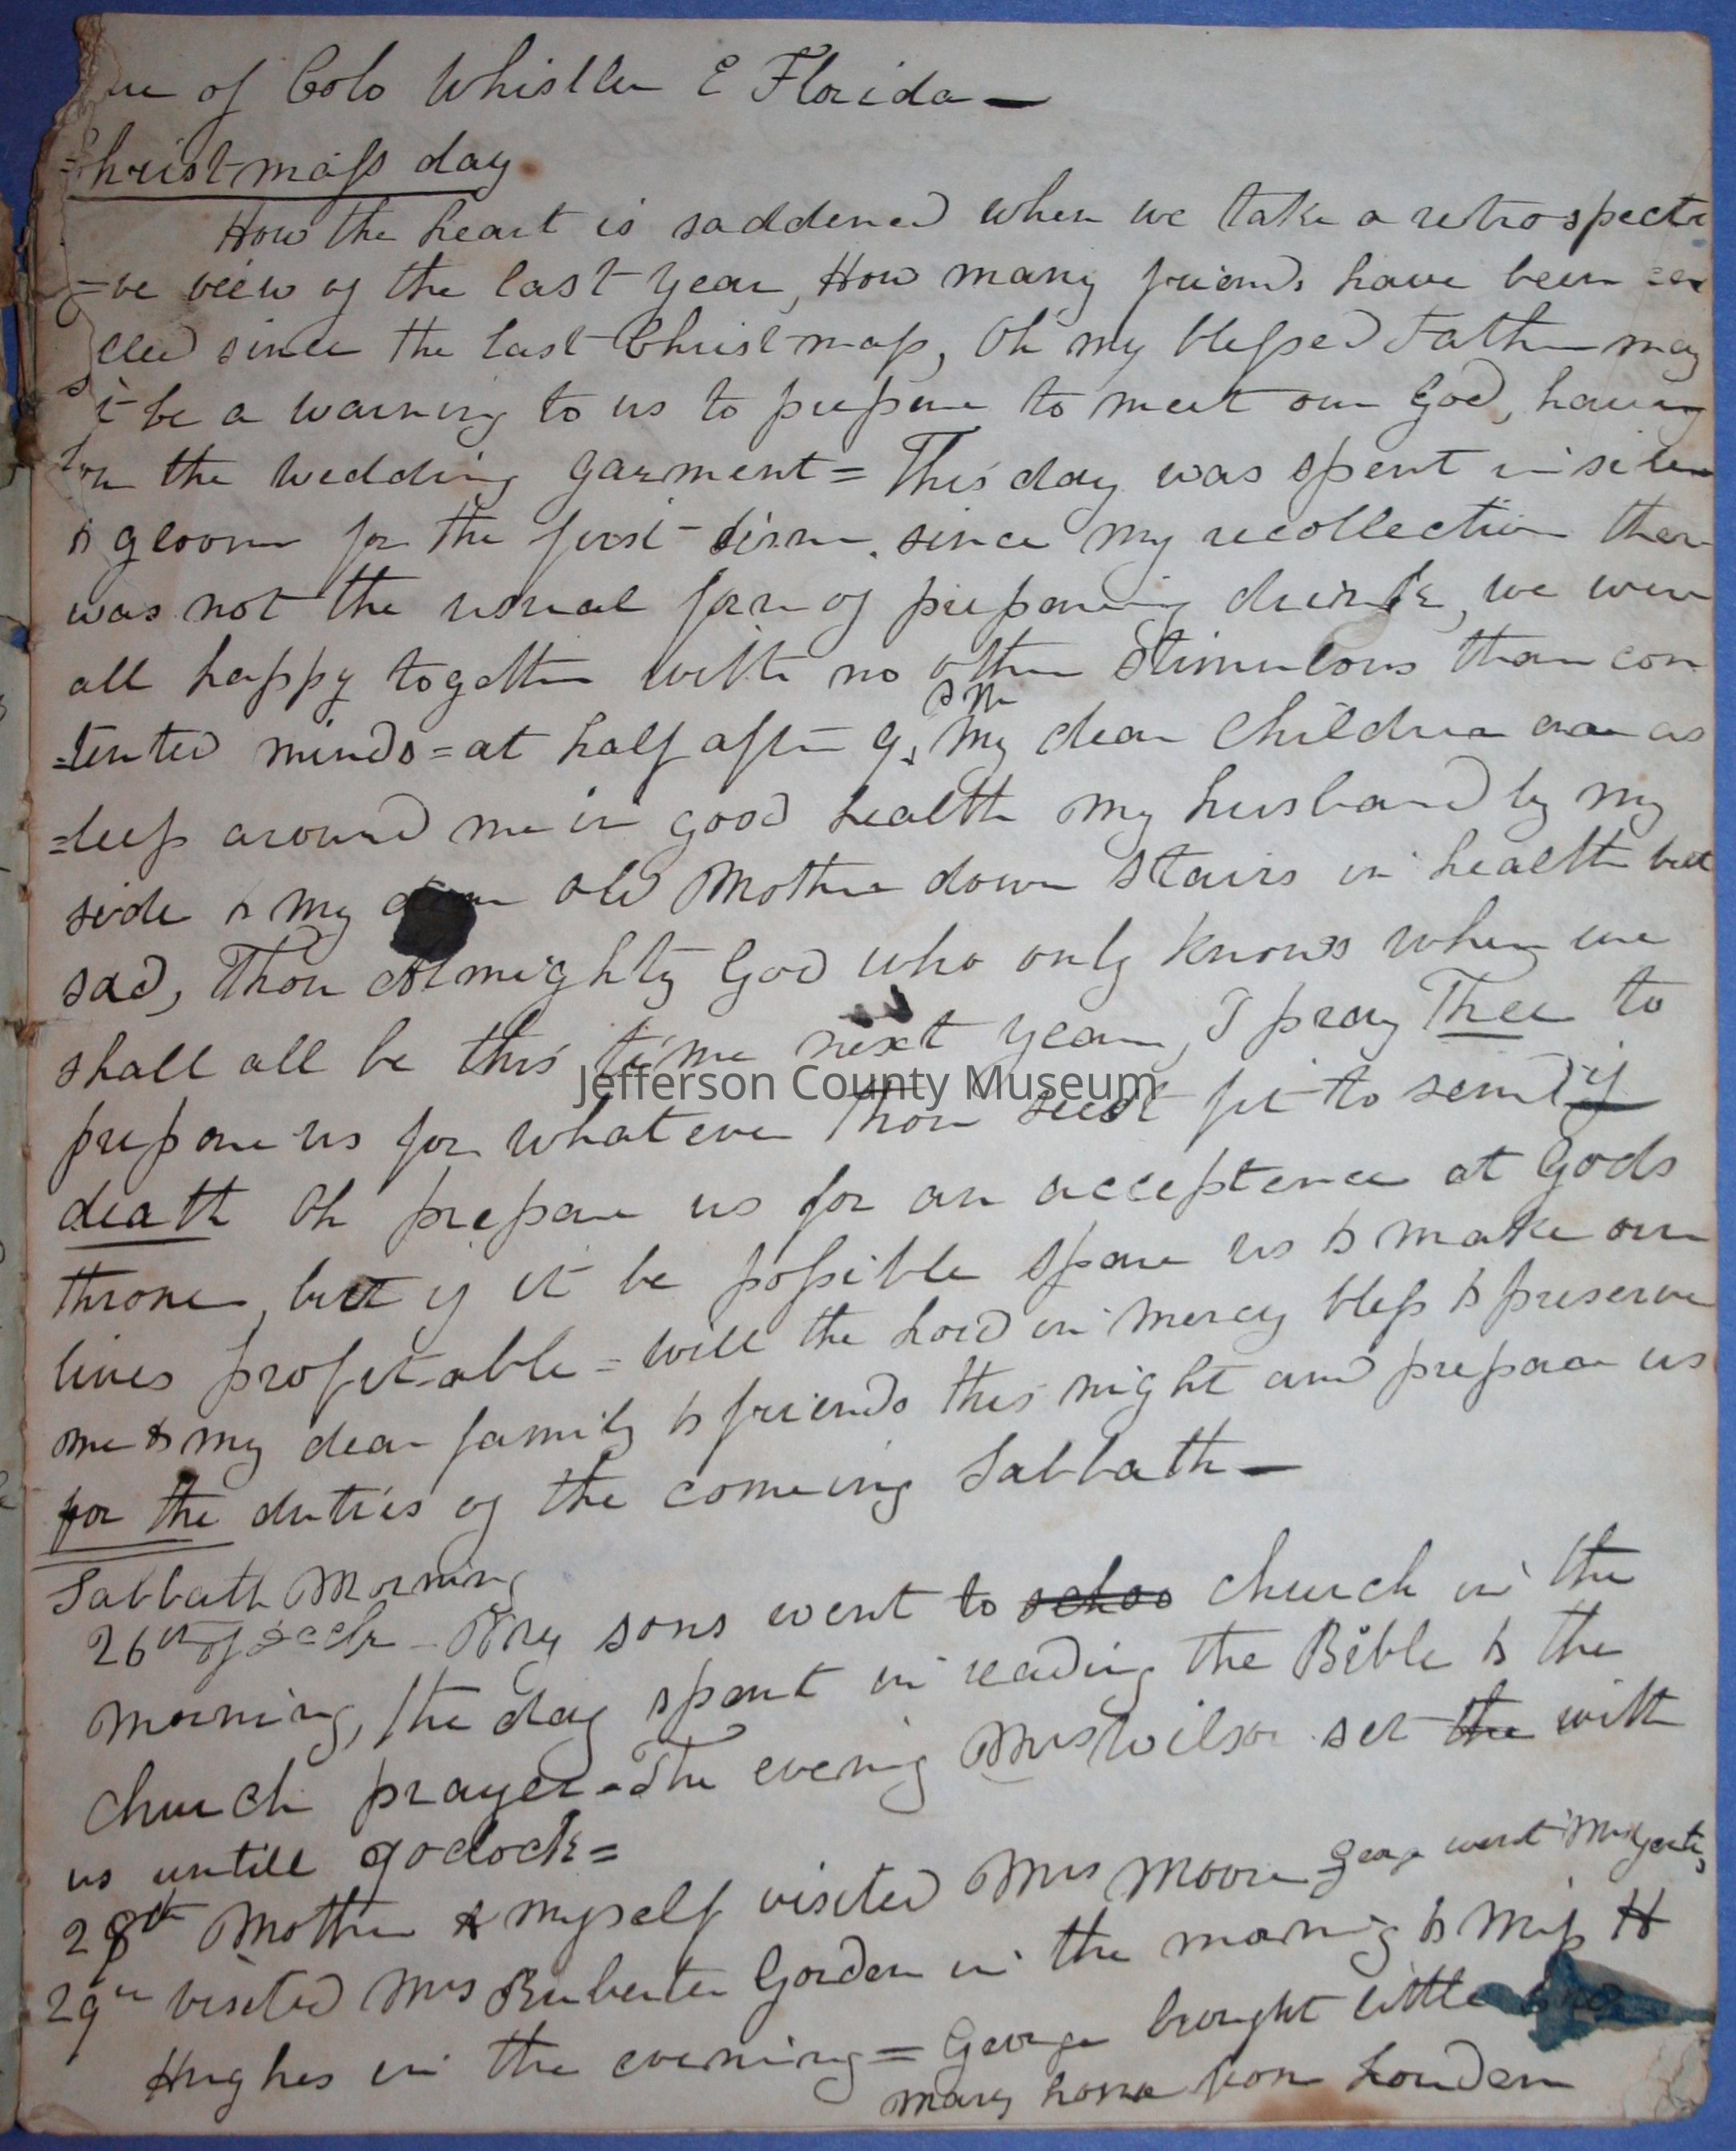 of Colo Whistler E Florida —
Christmass day
How the heart is saddened when we take a retrospecti
=ve view of the last year, How many friends have been ca
lled since the last Christmass, Oh my blessed Father may
it be a warning to us to prepare to meet our God, having
on the wedding garment = This day was spent in silen
& gloom for the first time. since my recollection there
was not the usual fare of prepareing drink, we were
all happy together with no other stimulous than con
=tented minds = at half after 9, my dear Children are as
P M
=leep around me in good health my husband by my
side & my dear old Mother down stairs in health but
sad, Thou Almighty God who only knows where we
shall all be this time next year, I pray Thee to
Jefferson County Museum
prepare us for whatever Thou seest fit to send if
death Oh prepare us for an acceptence at Gods
throne, but if it be possible spare us & make our
lives profitable = will the Lord in mercy bless & preserve
me & my dear family & friends this night and prepare us
for the duties of the comeing Sabbath —
Sabbath Morning
26th of Decbr - My sons went to schoo church in the
morning, the day spent in reading the Bible & the
church prayer - The evening Mrs Wilson set the with
us untill 9 oclock =
28th Mother & myself visited Mrs Moore George went Mrs
29th visited Mrs Gorden in the morning & Miss H
Hughes in the evening = George brought little
mary home from Louden